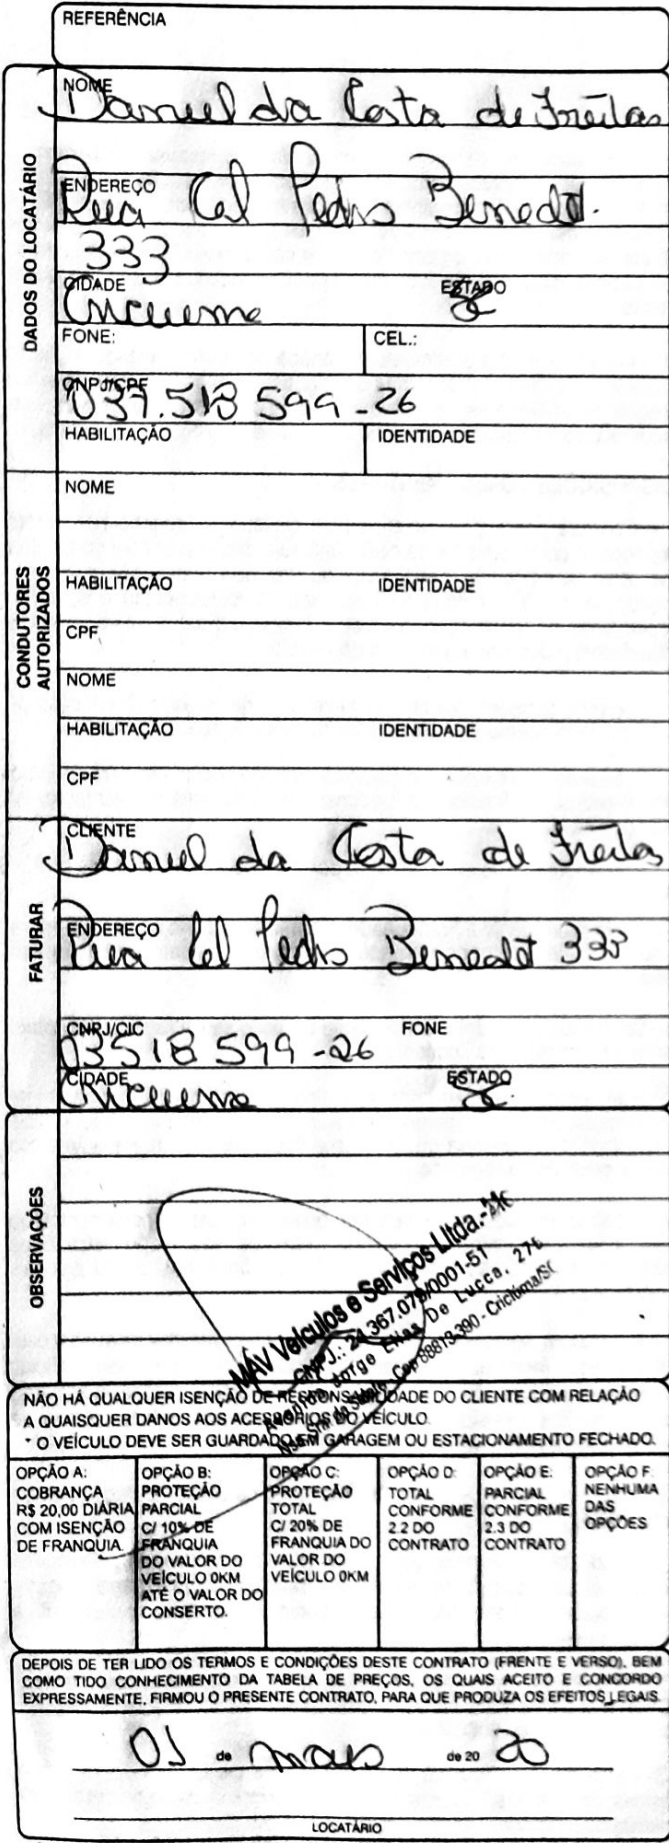 REFERÊNCIA
DADOS DO LOCATÁRIO
NOME
Daniel da Costa de Freitas
ENDEREÇO
Rua Cel Pedro Benedet.
333
CIDADE ESTADO
Criciuma SC
FONE: CEL.:
CNPJ/CPF
037.518 599-26
HABILITAÇÃO IDENTIDADE
CONDUTORES AUTORIZADOS
NOME
HABILITAÇÃO IDENTIDADE
CPF
NOME
HABILITAÇÃO IDENTIDADE
CPF
FATURAR
CLIENTE
Daniel da Costa de Freitas
ENDEREÇO
Rua Cel Pedro Benedet 333
CNPJ/CIC FONE
03518 599-26
CIDADE ESTADO
Criciuma SC
OBSERVAÇÕES
MÁV Veículos e Serviços Ltda.-ME
CNPJ.: 24.367.079/0001-51
Avenida Jorge Elias De Lucca, 276
Nsa. Sra. da Salete - Cep 88813-390 - Criciúma/SC
NÃO HÁ QUALQUER ISENÇÃO DE RESPONSABILIDADE DO CLIENTE COM RELAÇÃO
A QUAISQUER DANOS AOS ACESSÓRIOS DO VEÍCULO.
* O VEÍCULO DEVE SER GUARDADO EM GARAGEM OU ESTACIONAMENTO FECHADO.
OPÇÃO A:
COBRANÇA
R$ 20,00 DIÁRIA
COM ISENÇÃO
DE FRANQUIA.
OPÇÃO B:
PROTEÇÃO
PARCIAL
C/ 10% DE
FRANQUIA
DO VALOR DO
VEÍCULO 0KM
ATÉ O VALOR DO
CONSERTO.
OPÇÃO C:
PROTEÇÃO
TOTAL
C/ 20% DE
FRANQUIA DO
VALOR DO
VEÍCULO 0KM
OPÇÃO D:
TOTAL
CONFORME
2.2 DO
CONTRATO
OPÇÃO E:
PARCIAL
CONFORME
2.3 DO
CONTRATO
OPÇÃO F:
NENHUMA
DAS
OPÇÕES
DEPOIS DE TER LIDO OS TERMOS E CONDIÇÕES DESTE CONTRATO (FRENTE E VERSO), BEM
COMO TIDO CONHECIMENTO DA TABELA DE PREÇOS, OS QUAIS ACEITO E CONCORDO
EXPRESSAMENTE, FIRMOU O PRESENTE CONTRATO, PARA QUE PRODUZA OS EFEITOS LEGAIS.
01 de maio de 20 20
LOCATÁRIO